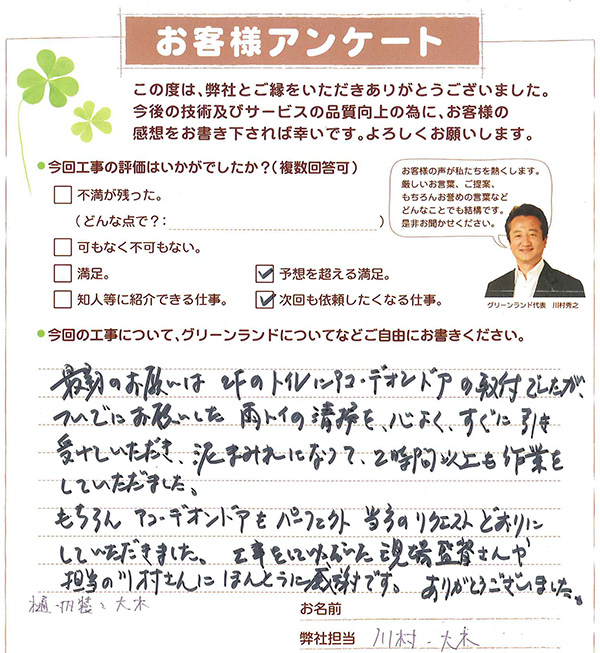 お客様アンケート
この度は、弊社とご縁をいただきありがとうございました。
今後の技術及びサービスの品質向上の為に、お客様の
感想をお書き下されば幸いです。よろしくお願いします。
●今回工事の評価はいかがでしたか？（複数回答可）
不満が残った。
（どんな点で？：　）
可もなく不可もない。
満足。
予想を超える満足。
知人等に紹介できる仕事。
次回も依頼したくなる仕事。
お客様の声が私たちを熱くします。
厳しいお言葉、ご提案、
もちろんお誉めの言葉など
どんなことでも結構です。
是非お聞かせください。
グリーンランド代表　川村秀之
●今回の工事について、グリーンランドについてなどご自由にお書きください。
最初のお願いは 2Fのトイレにアコーデオンドアの取付でしたが、
ついでにお願いした 雨トイの清掃を、心よく、すぐに引き
受けしていただき、泥まみれになって、2時間以上も作業を
していただました。
もちろん アコーデオンドアも パーフェクト 当方のリクエストどおりに
していただきました。 工事をして 現場監督さんや
担当の川村さんに ほんとうに感謝です。 ありがとうございました。
大木
お名前
弊社担当 川村・大木